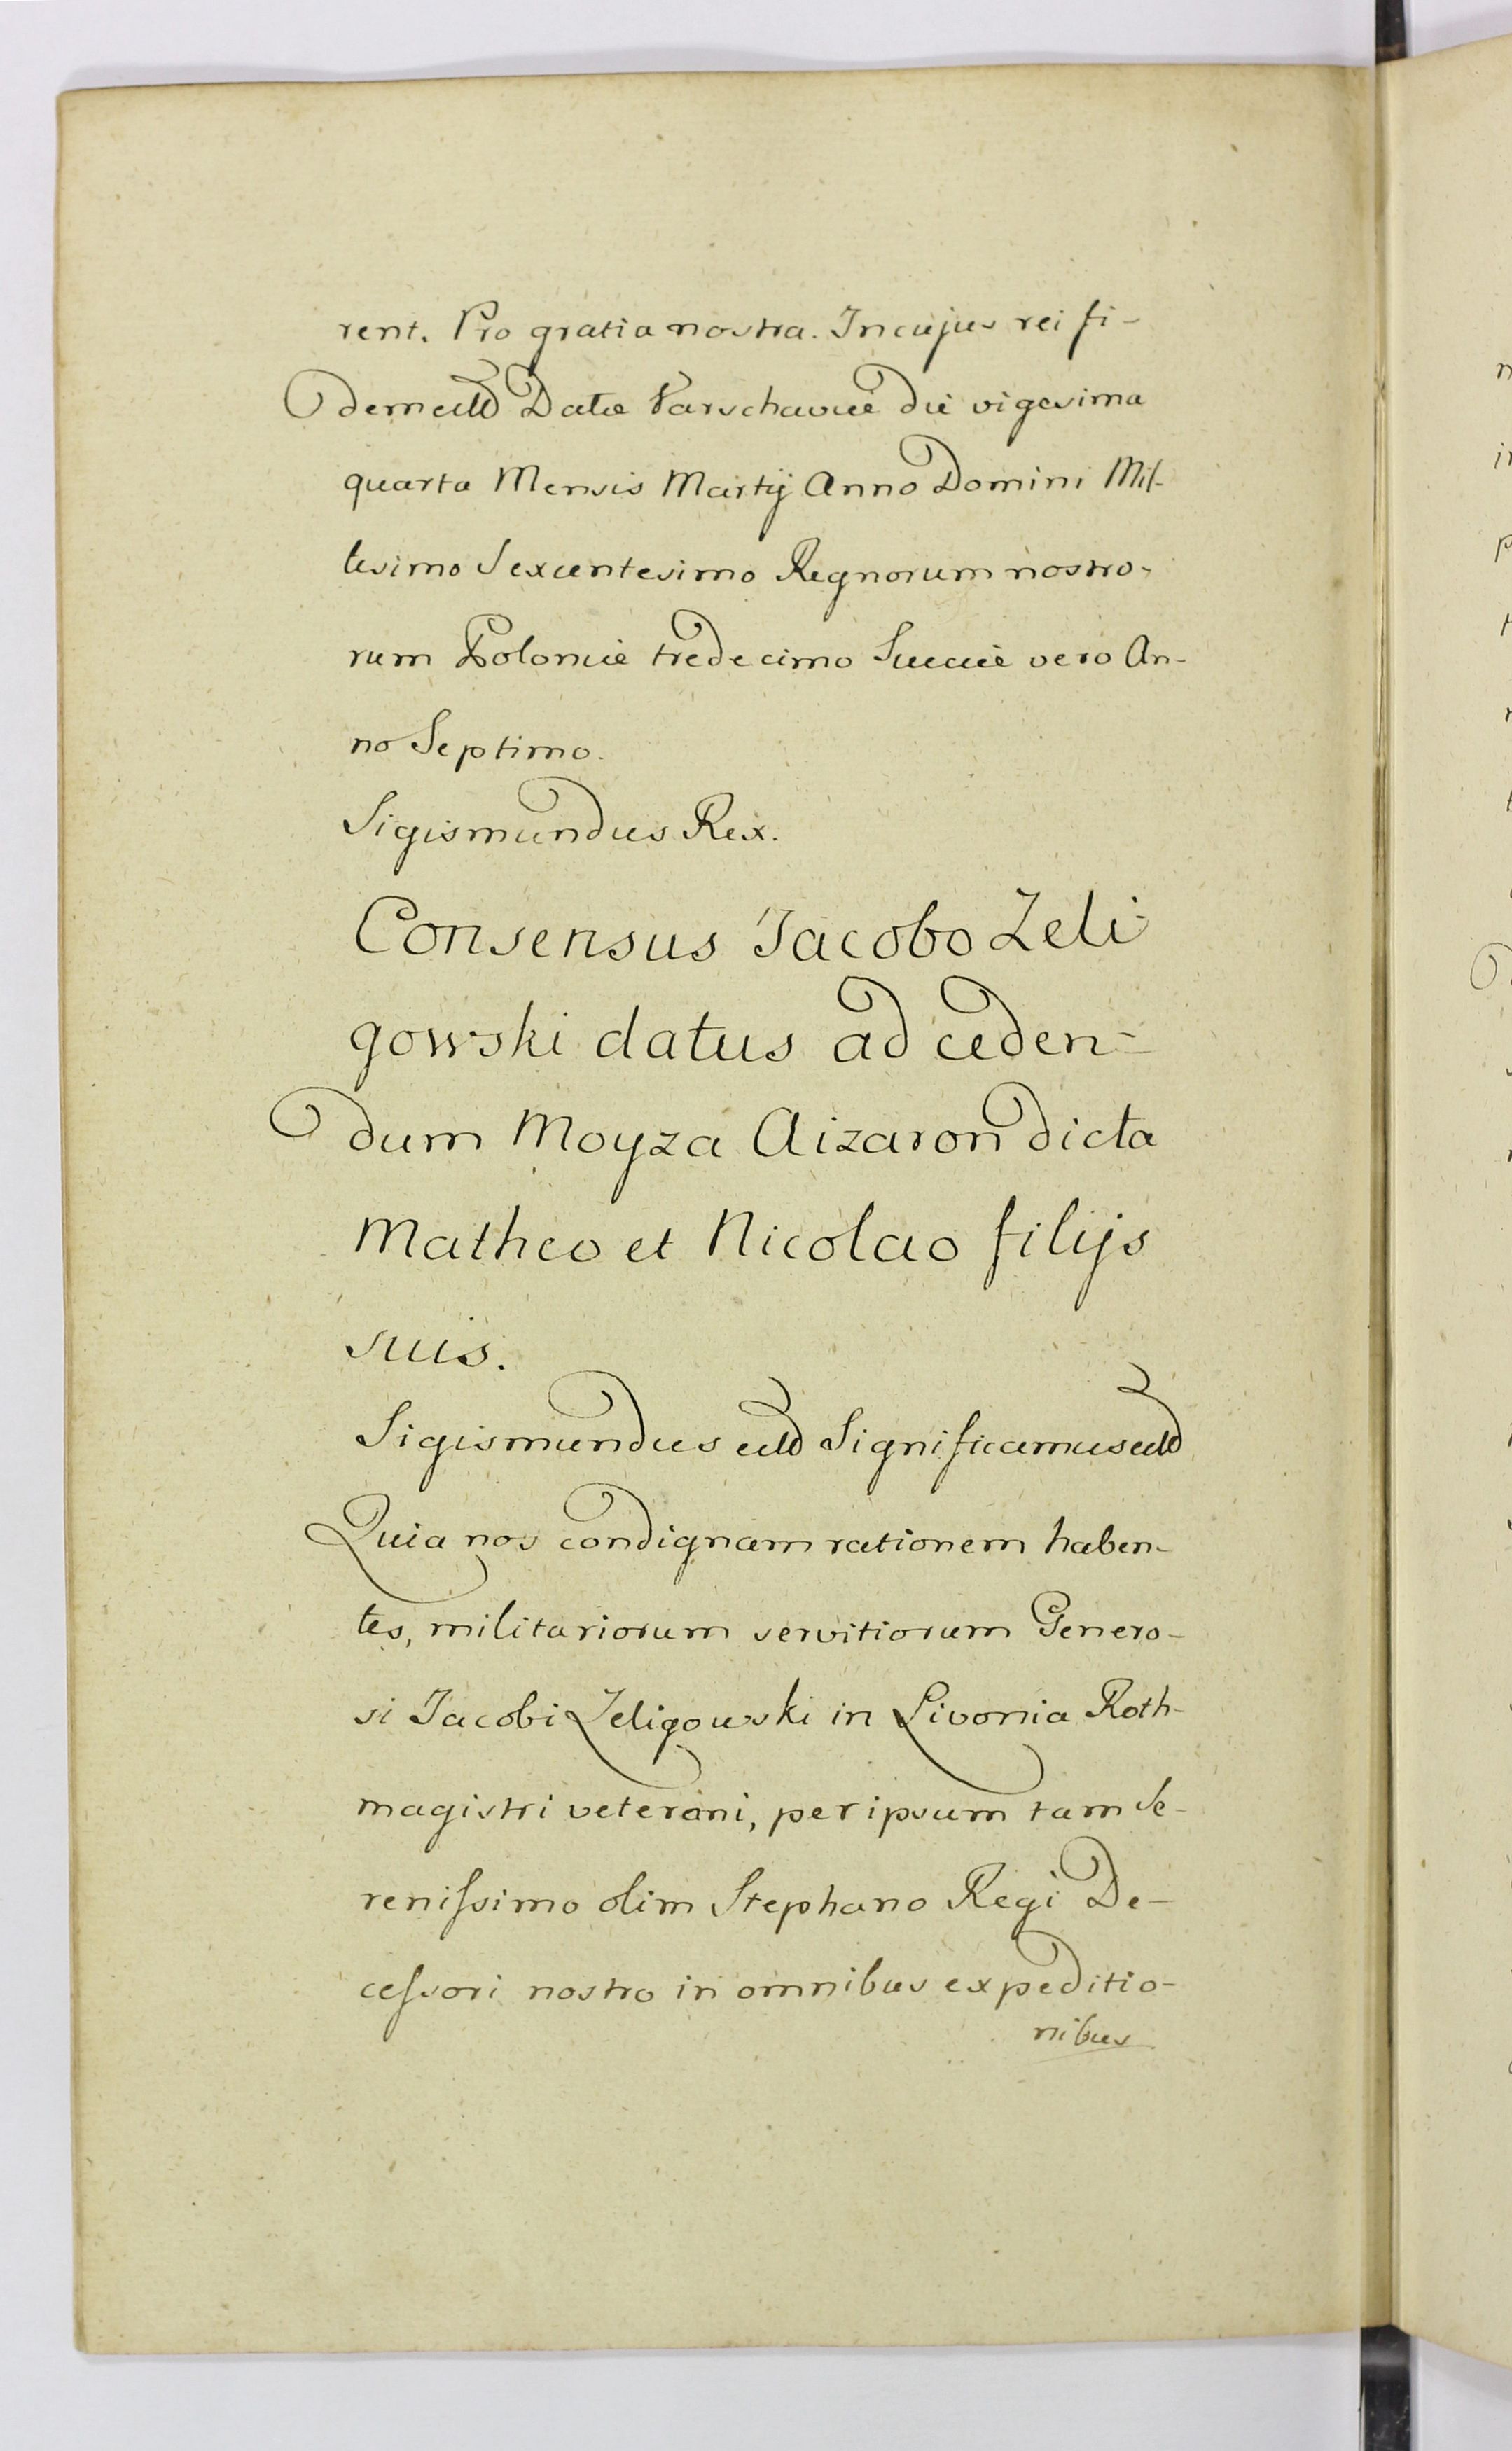 rent. Pro gratia nostra. In cujus rei fi-
dem etc Datæ Varschaviæ die vigesima
quarta Mensis Martij Anno Domini Mil-
lesimo Sexcentesimo Regnorum nostro-
rum Poloniæ tredecimo Sueciæ vero An-
no Septimo.
Sigismundus Rex.
Consensus Jacobo Zeli-
gowski datus ad ceden-
dum Moyza Aizaron dicta
Matheo et Nicolao filijs
suis.
Sigismundus etc Significamus etc
Quia nos condignam rationem haben-
tes, militariorum servitiorum Genero-
si Jacobi Zeligowski in Livonia Roth-
magistri veterani, per ipsum tam Se-
renissimo olim Stephano Regi De-
cessori nostro in omnibus expeditio-
nibus